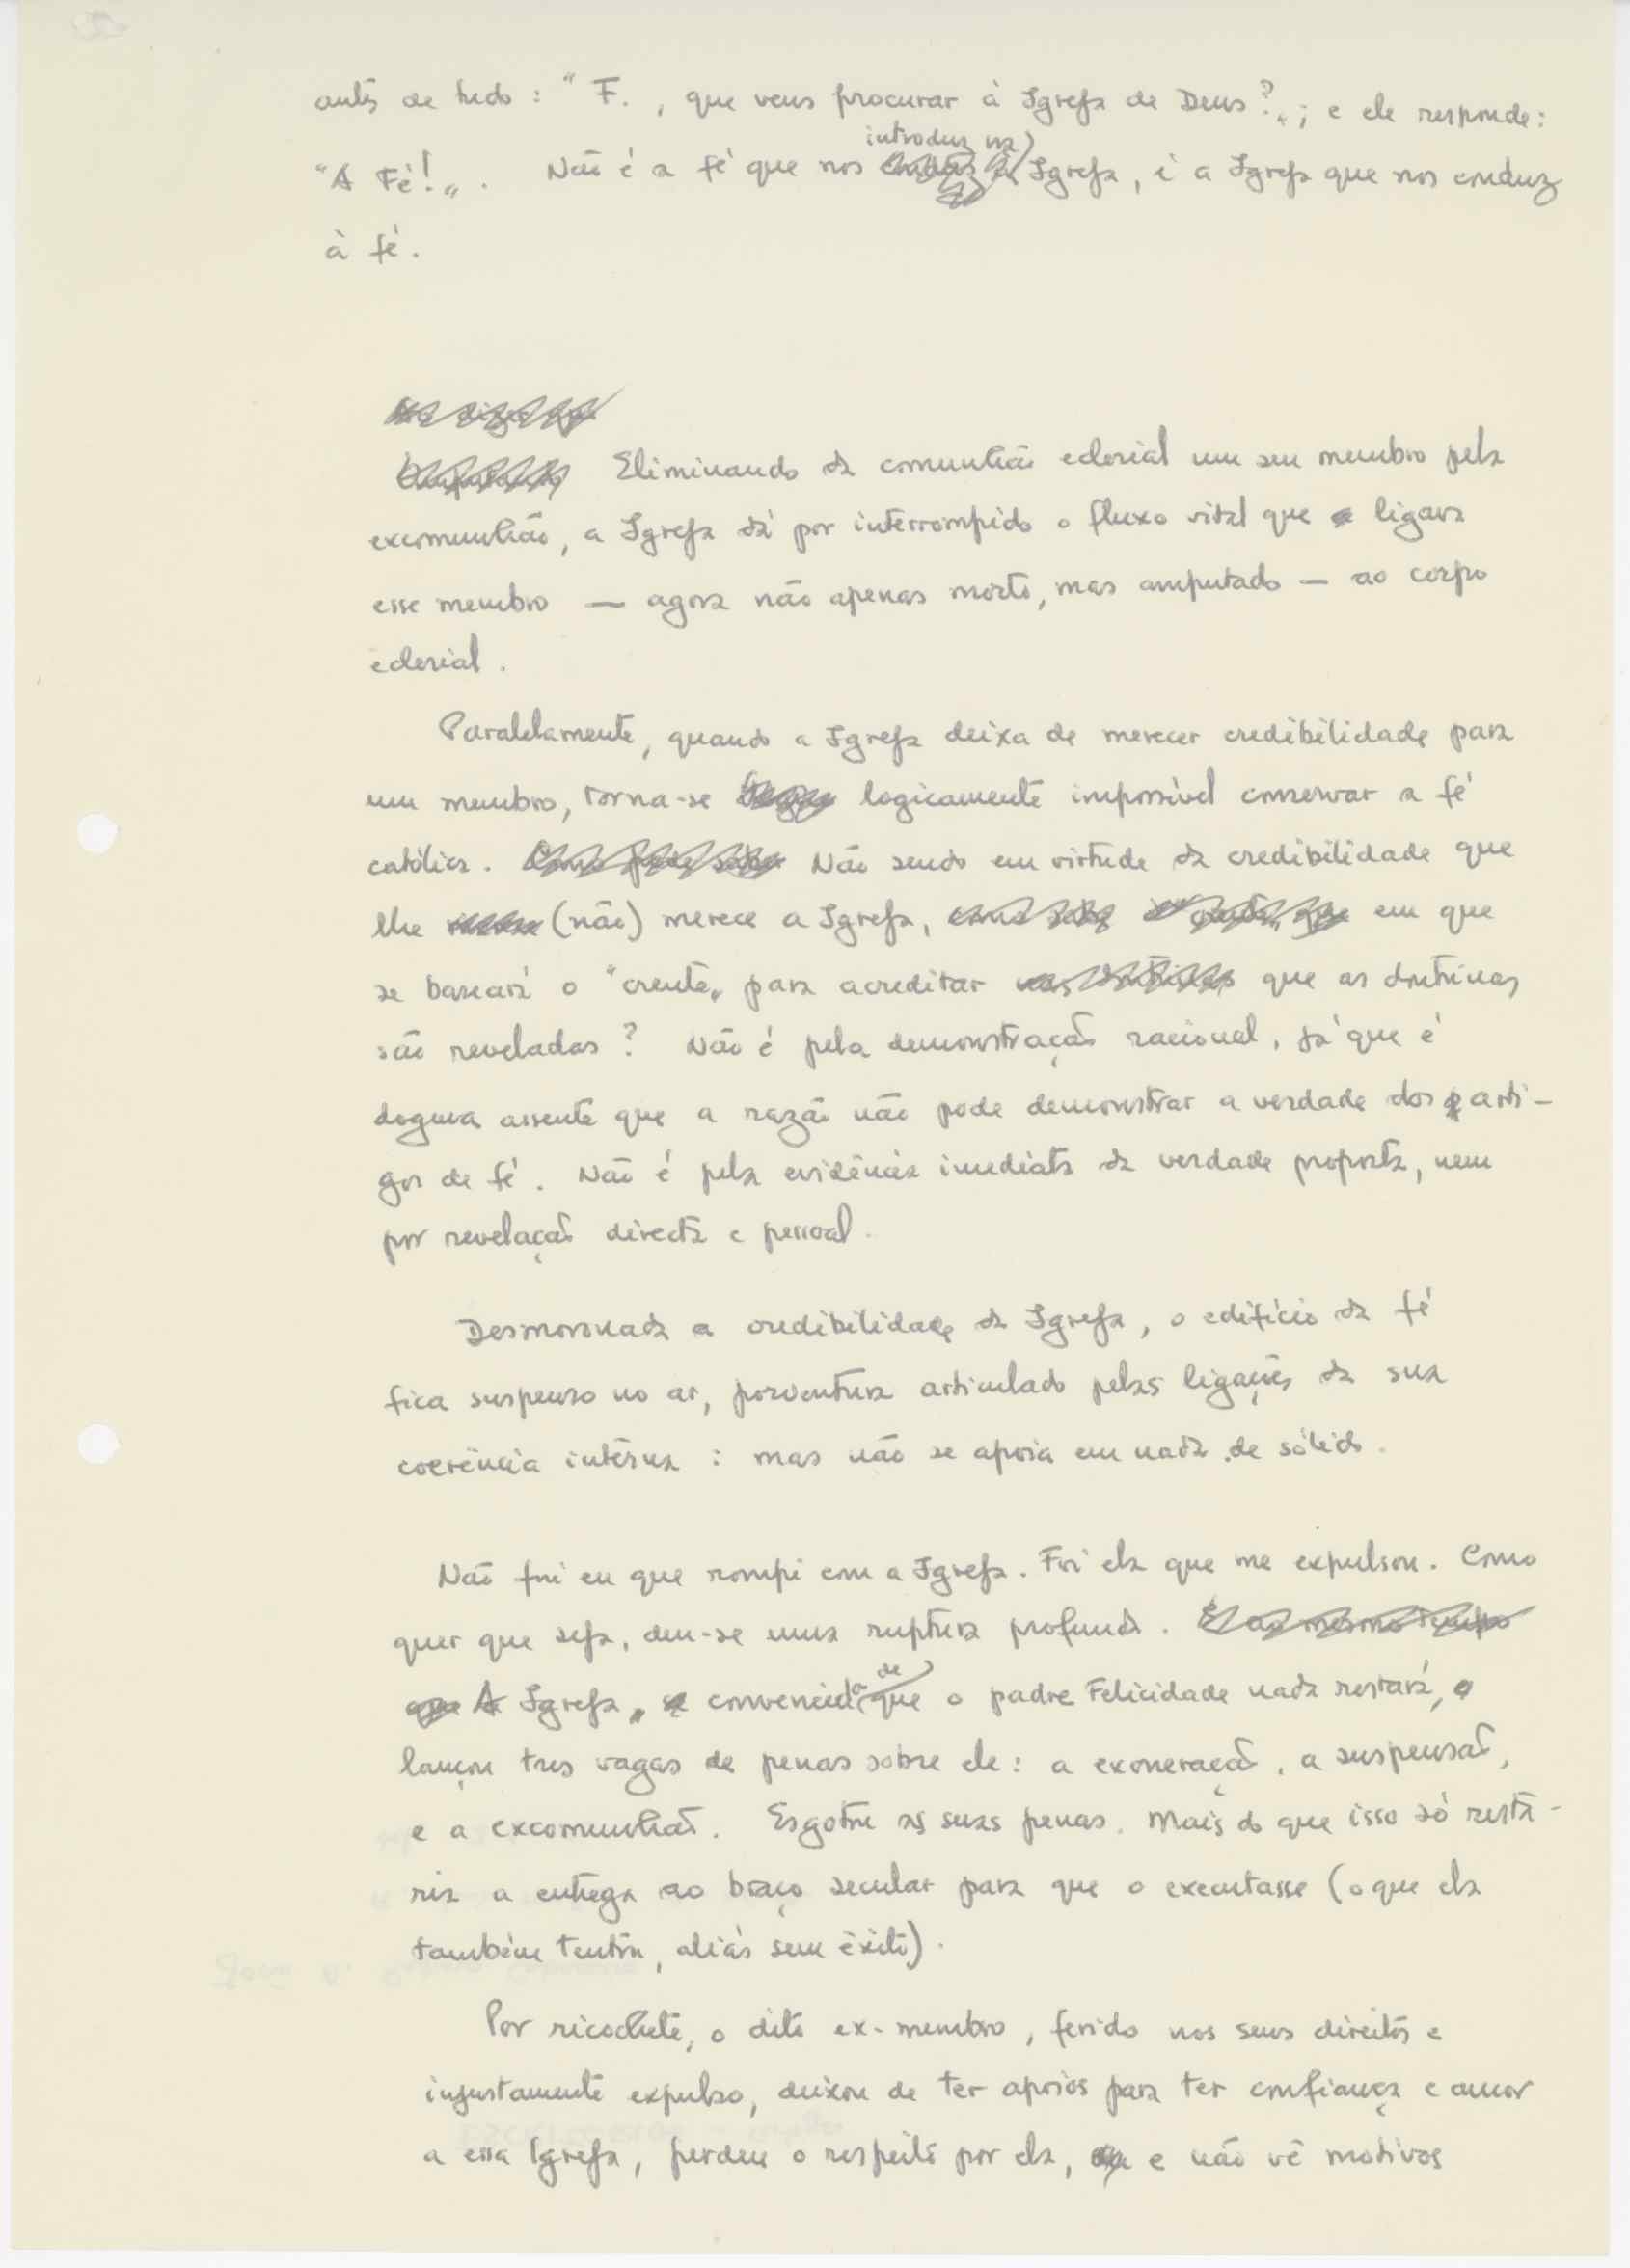 antes de tudo: "F., que vens procurar à Igreja de Deus?"; e ele responde:
introduz na
"A Fé!". Não é a fé que nos Igreja, é a Igreja que nos conduz
à fé.
Eliminando da comunhão eclesial um seu membro pela
excomunhão, a Igreja dá por interrompido o fluxo vital que ligava
esse membro — agora não apenas morto, mas amputado — ao corpo
eclesial.
Paralelamente, quando a Igreja deixa de merecer credibilidade para
um membro, torna-se logicamente impossível conservar a fé
católica. Não sendo em virtude da credibilidade que
lhe (não) merece a Igreja, em que
se baseará o "crente" para acreditar que as doutrinas
são reveladas? Não é pela demonstração racional, já que é
dogma assente que a razão não pode demonstrar a verdade dos arti-
gos de fé. Não é pela evidência imediata da verdade proposta, nem
por revelação directa e pessoal.
Desmoronada a credibilidade da Igreja, o edifício da fé
fica suspenso no ar, porventura articulado pelas ligações da sua
coerência interna: mas não se apoia em nada de sólido.
Não fui eu que rompi com a Igreja. Foi ela que me expulsou. Como
quer que seja, deu-se uma ruptura profunda. E ao mesmo tempo
de
que A Igreja, convencida que o padre Felicidade nada restará,
lançou tres vagas de penas sobre ele: a exoneração, a suspensão,
e a excomunhão. Esgotou as suas penas. Mais do que isso só resta-
ria a entrega ao braço secular para que o executasse (o que ela
também tentou, aliás sem êxito).
Por ricochete, o dito ex-membro, ferido nos seus direitos e
injustamente expulso, deixou de ter apoios para ter confiança e amor
a essa Igreja, perdeu o respeito por ela, e não vê motivos